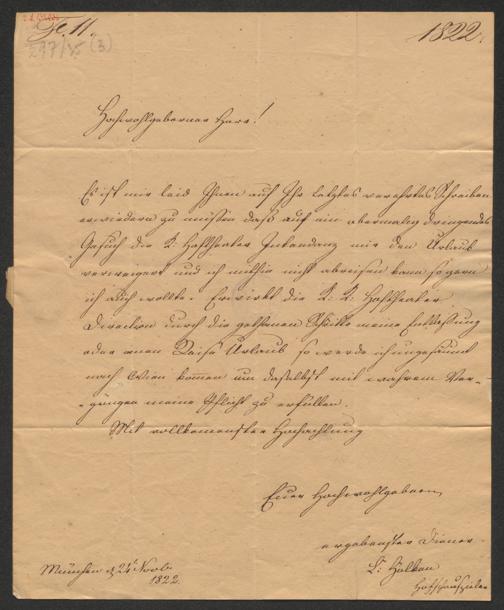 Fc. 11.
297/35 (3)
1822.
Hochwohlgeborner Herr!
Es ist mir leid Ihnen auf Ihr letztes verehrtes Schreiben
erwiedern zu müssen daß auf ein abermalig dringendes
Gesuch die K: Hoftheater Intendanz mir den Urlaub
verweigert und ich mithin nicht abreisen kann so gern
ich auch wollte. Erwirkt die K: K: Hoftheater
Direction durch die gethanen Schritte meine Entlassung
oder einen Reise Urlaub so werde ich ungesäumt
nach Wien kommen um daselbst mit wahrem Ver-
gnügen meine Pflicht zu erfüllen.
Mit vollkommenster Hochachtung
Euer Hochwohlgeboren
ergebenster Diener
München d 24 Novb
1822
Hofschauspieler